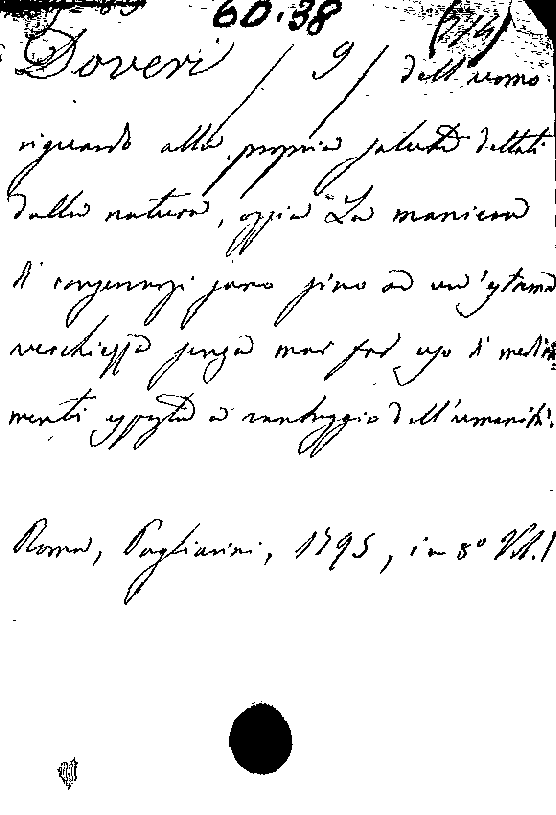 60.38
(214)
Doveri / 9 / dell'uomo
riguardo alla propria salute dettati
dalla natura, ossia La maniera
di conservarsi sano sino ad un'estrema
vecchiezza senza mai far uso di medica
menti esposta a vantaggio dell'umanità.
Roma, Pagliarini, 1795, in 8º Vol. 1